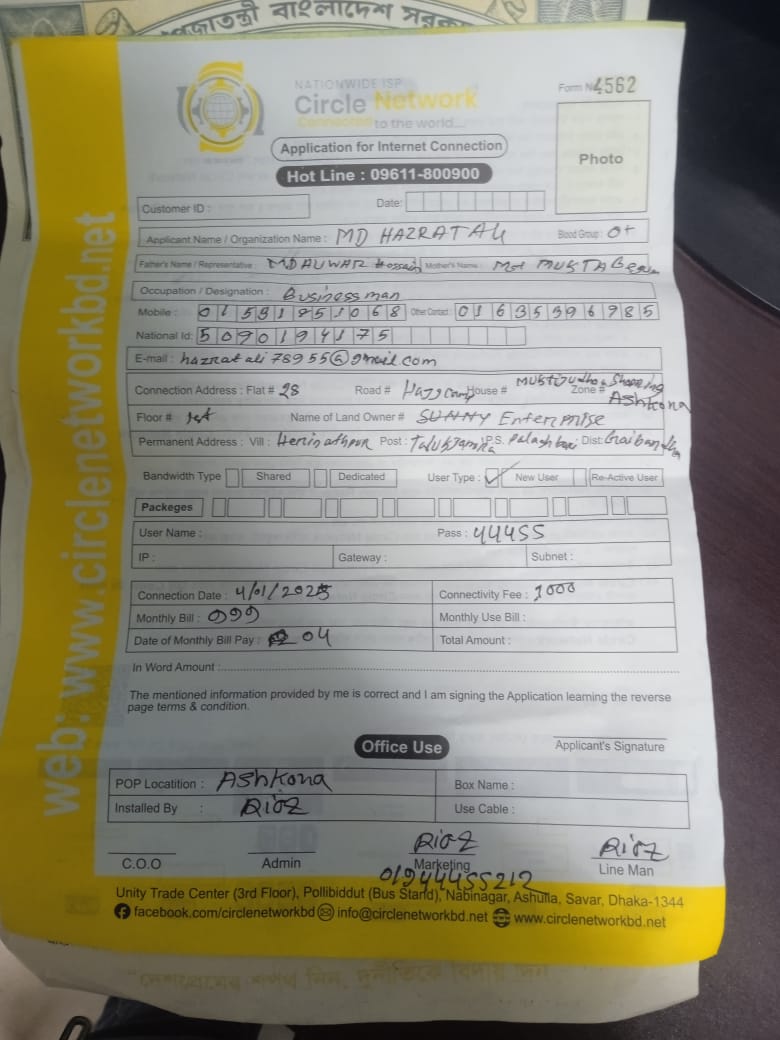 প্রজাতন্ত্রী বাংলাদেশ সরকার
NATIONWIDE ISP
Circle Network
Connected to the world....
Form No 4562
Application for Internet Connection
Hot Line : 09611-800900
Photo
Customer ID :
Date:
Applicant Name / Organization Name : MD HAZRAT ALI Blood Group : O+
Father's Name / Representative MD AUWAR Hossain Mother's Name : Mst MUKTA Begum
Occupation / Designation : Businessman
Mobile : Other Contact : 01635396985
National Id: 5090194175
E-mail : hazratali78955@gmail.com
Connection Address : Flat # 28 Road # Hazz Camp House # Zone # Ashkona
Floor # 1st Name of Land Owner # SUNNY Enterprise
Permanent Address : Vill : Post : P.S. Palashbari Dist: Gaibandha
Bandwidth Type Shared Dedicated User Type : ✓ New User Re-Active User
Packeges
User Name : Pass : 44455
IP : Gateway : Subnet :
Connection Date : 4/01/2025 Connectivity Fee : 1000
Monthly Bill : 999 Monthly Use Bill :
Date of Monthly Bill Pay : 04 Total Amount :
In Word Amount :
The mentioned information provided by me is correct and I am signing the Application learning the reverse
page terms & condition.
Applicant's Signature
Office Use
POP Locatition : Ashkona Box Name :
Installed By : Use Cable :
C.O.O Admin Marketing Line Man
01944455212
Unity Trade Center (3rd Floor), Pollibiddut (Bus Stand), Nabinagar, Ashulia, Savar, Dhaka-1344
facebook.com/circlenetworkbd info@circlenetworkbd.net www.circlenetworkbd.net
web: www.circlenetworkbd.net
"দেশপ্রেমের শপথ নিন, দুর্নীতিকে বিদায় দিন"